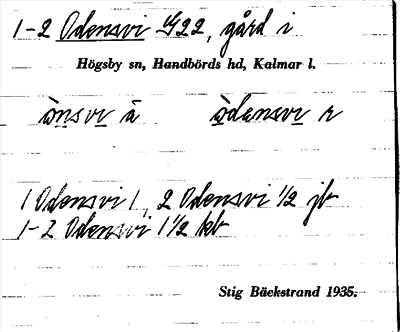 1-2 Odensvi G22, gård i
Högsby sn, Handbörds hd, Kalmar l.
ònsvi ä òdensvi r
1 Odensvi 1, 2 Odensvi ½ jb
1-2 Odensvi 1½ kb
Stig Bäckstrand 1935.